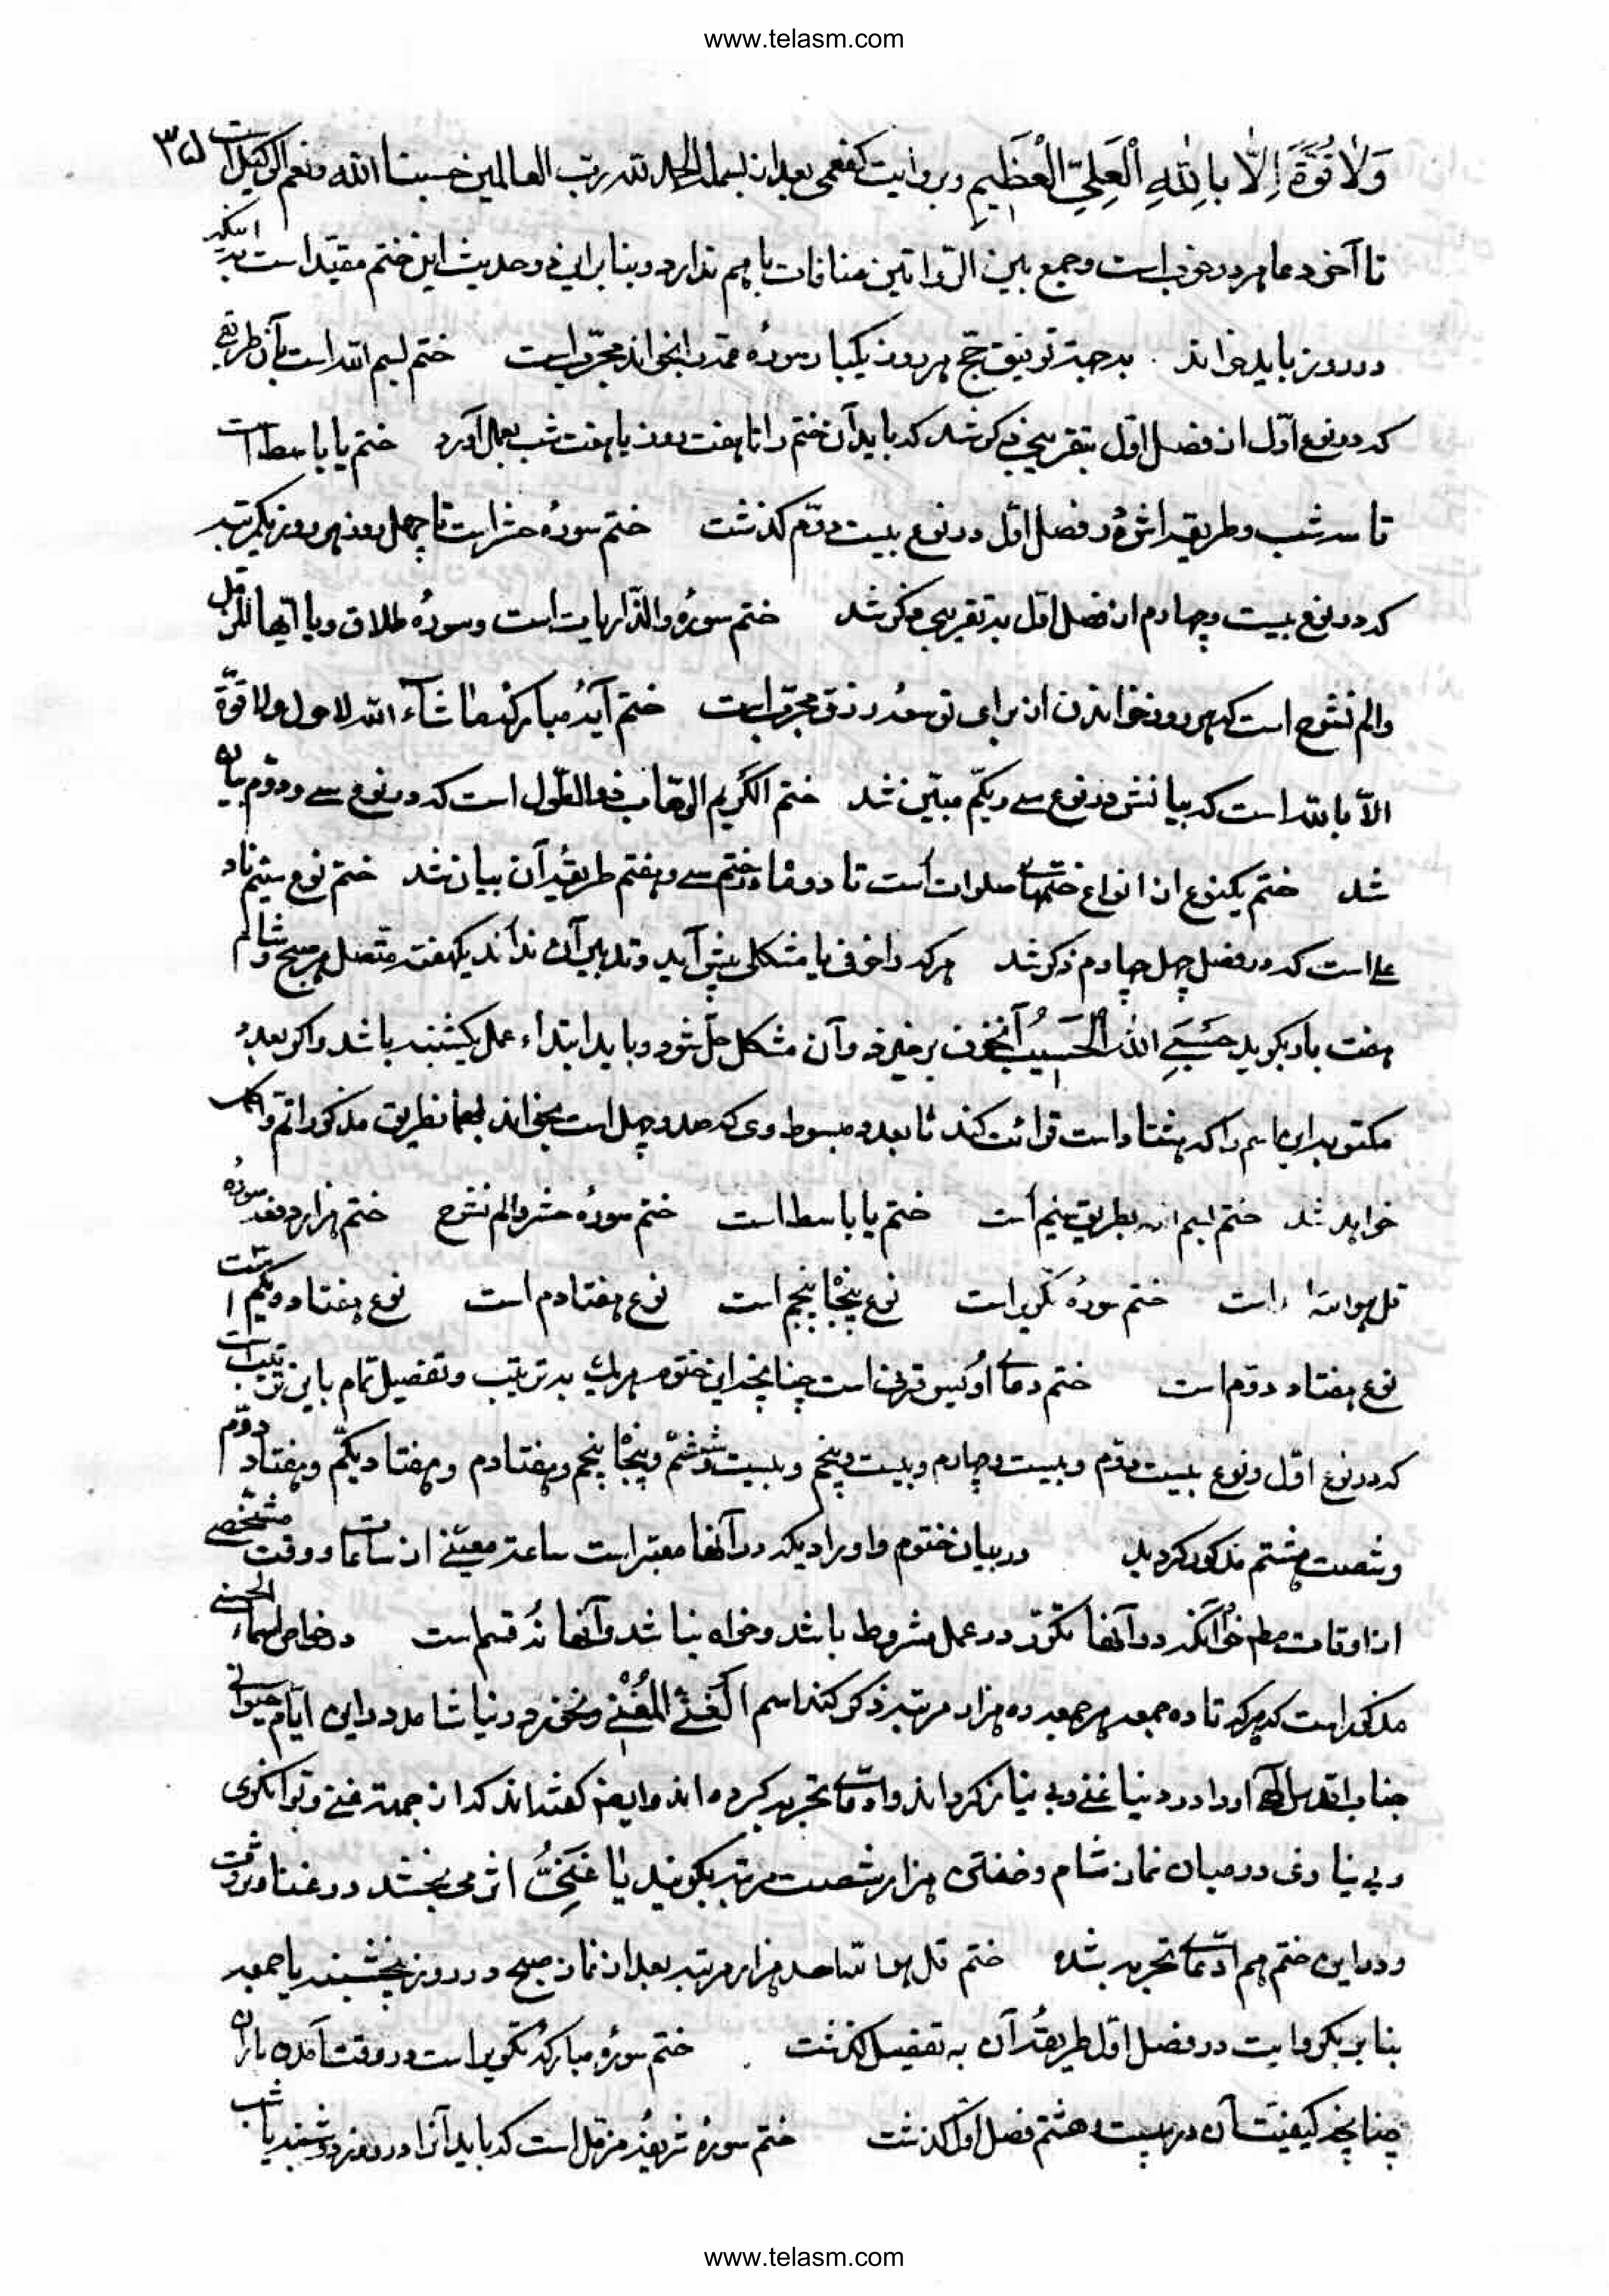 www.telasm.com
وَلاٰ قُوَّةَ اِلّاٰ بِاللّٰهِ الْعَلِیِّ الْعَظیمِ وبروایت کفعمی بعد از بسمله الحمد لله رب العالمین حسبنا الله ونعم الوکیل است ۳۵
تا آخر دعا هر دو خوب است وجمع بین الروایتین منافات با هم ندارد وبنا بر این دو حدیث این ختم مقید است
در روز باید خواند بدجهة توفیق حج هر روز یکبار سوره بخواند مجرب است ختم بسم الله است بآن طریق
که در نوع اول از فصل اول بتقریبی ذکر شد که باید آن ختم را تا هفت روز یا هفت شب بعمل آورد ختم یا باسط است
تا سه شب وطریقه اش در فصل اول در نوع بیست ودوم کذشت ختم سوره حشر است تا چهل روز هر روز یکمرتبه
که در نوع بیست وچهارم از فصل اول بتقریبی ذکر شد ختم سوره والذاریات است وسوره طلاق ویا ایها المزمل
والم نشرح است که هر روز خواندن آن برای توسعه رزق مجرب است ختم آیه مبارکه ما شآء الله لا حول ولا قوة
الا بالله است که بیانش در نوع سی ویکم مبین شد ختم الکریم الوهاب ذو الطول است که در نوع سی ودوم بیان
شد ختم یکنوع از انواع ختمهای صلوات است تا در ختم سی وهفتم طریقه آن بیان شد ختم نوع ناد
علی است که در فصل چهل چهارم ذکر شد هر که را خوفی یا مشکلی پیش آید وتدبیر آن نداند یکهفته متصل هر صبح وشام
هفت بار بکوید حَسْبِیَ اللّٰهُ الْحَسیبُ آنخوف برخیزد وآن مشکل حل شود وباید ابتداء عمل یکشنبه باشد واکر بعدد
مکتوبه این اسم را که هشتاد است قرائت کند تا بعدد مبسوط وی که صد وچهل است بخواند بهمان طریق مذکور
خواهد شد ختم بسم الله بطریق است ختم یا باسط است ختم سوره حشر والم نشرح ختم هزار دفعه سوره
قل هو الله است ختم سوره است نوع پنجاه پنجم است نوع هفتادم است نوع هفتاد ویکم است
نوع هفتاد ودوم است ختم دعای اویس قرنی است چنانچه این ختوم هر یک بترتیب وتفصیل تمام باین ترتیب است
که در نوع اول ونوع بیست ودوم وبیست وچهارم وبیست وپنجم وبیست وششم وپنجاه پنجم وهفتادم وهفتاد ویکم وهفتاد ودوم
وشصت وهشتم مذکور کردید در بیان ختوم واورادیکه در آنها معتبر است ساعة معینی از ساعات ووقت مشخصی
از اوقات خواه آنکه در آنها تکرر در عمل مشروط باشد وخواه نباشد وآنها نه قسم است در خواص اسماء الحسنی
مذکور است که هر که تا ده جمعه هر جمعه ده هزار مرتبه ذکر کند اسم الْغَنِیُّ الْمُغْنی در این ایام
جناب اقدس الهی او را در دنیا غنی وبی نیاز کرداند وادعای تجربه کرده اند وایضا کفته اند که از جهة غنی وتوانکری
وبی نیازی در میان نماز شام وخفتن هزار شصت مرتبه بکویند یٰا غَنِیُّ اثر می بخشد در غنا وثروت
ودر این ختم هم ادعای تجربه شده ختم قل هو الله احد هزار مرتبه بعد از نماز صبح در روز پنجشنبه یا جمعه
بنا بر یک روایت در فصل اول طریقه آن به تفصیل کذشت ختم سوره مبارکه تکویر است در وقت آمدن باران
چنانچه کیفیت آن در بیست وهشتم فصل اول کذشت ختم سوره شریفه مزمل است که باید آنرا در روز دوشنبه یا شب
www.telasm.com